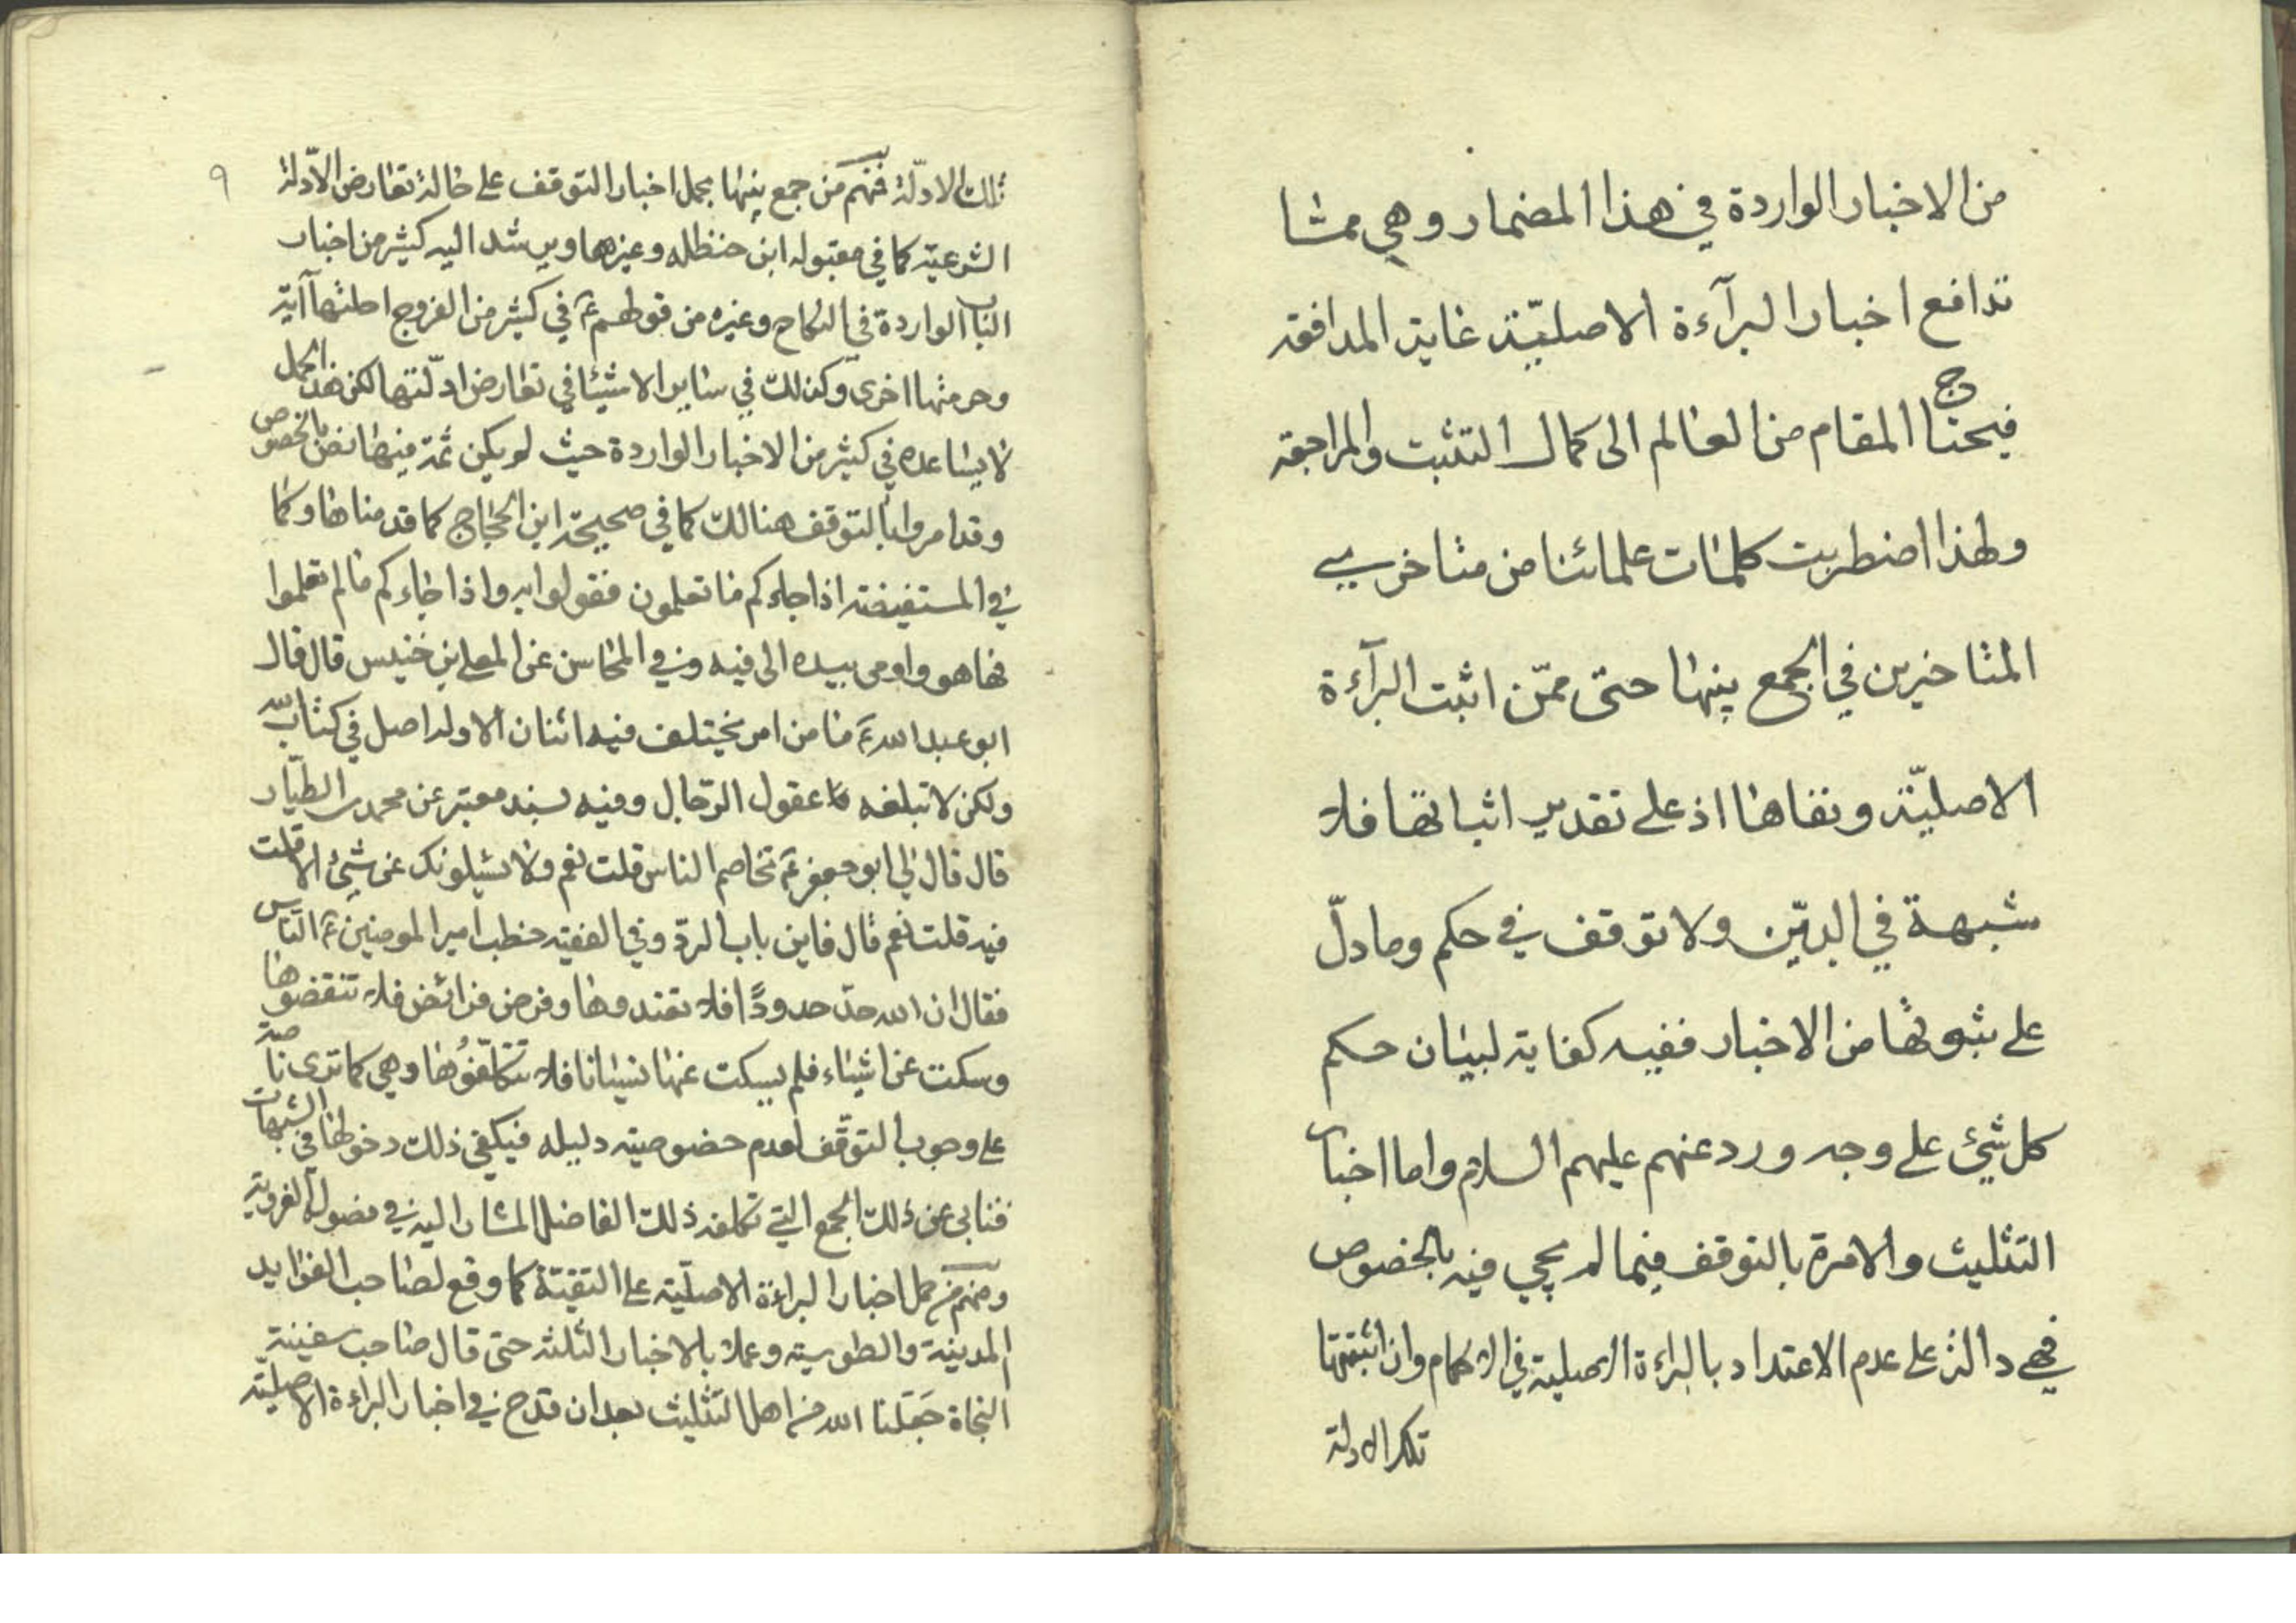 من الاخبار الواردة في هذا المضمار وهي مما
تدافع اخبار البرآءة الاصليّة غاية المدافعة
فيحتاج المقام من العالم الى كمال التثبت والمراجعة
ولهذا اضطربت كلمات علمائنا من متاخري
المتاخرين في الجمع بينها حتى ممّن اثبت البرآءة
الاصليّة ونفاها اذ على تقدير اثباتها فلا
شبهة في الدّين ولا توقف في حكم وما دلّ
على ثبوتها من الاخبار ففيه كفاية لبيان حكم
كل شيئ على وجه ورد عنهم عليهم السلام واما اخبار
التثليث والامرة بالتوقف فيما لم يجي فيه بالخصوص
فهي دالة على عدم الاعتداد بالبراءة الاصلية في الاحكام وان اثبتتها
تلك الادلة
٩
تلك الادلّة فمنهم من جمع بينها بحمل اخبار التوقف على حالة تعارض الادّلة
الشرعيّة كما في مقبوله ابن حنظله وغيرها ويرشد اليه كثير من اخبار
الباب الواردة في النكاح وغيره من قولهم ع في كثير من الفروج احلتها آية
وحرمتها اخرى وكذلك في ساير الاشيئا في تعارض ادلّتها لكن هذا الحمل
لا يساعده في كثير من الاخبار الواردة حيث لو يكن ثمة فيها نص بالخصوص
وقد امروا بالتوقف هنالك كما في صحيحة ابن الحجاج كما قدمناها وكما
في المستفيضة اذا جاءكم ما تعلمون فقولوا به واذا جاءكم ما لم تعلموا
فها هو واومى بيده الى فيه وفي المحاسن عن المعلى بن خنيس قال قال
ابو عبد الله ع ما من امر يختلف فيه اثنان الا وله اصل في كتاب الله
ولكن لا تبلغه عقول الرّجال وفيه بسند معتبر عن محمد بن الطيّار
قال قال لي ابو جعفر ع تخاصم الناس قلت نعم ولا يسئلونك عن شيئ الا قلت
فيه قلت نعم قال فاين باب الردّ وفي الفقيه خطب امير المومنين ع النّاس
فقال ان الله حدّ حدودًا فلا تعتدوها وفرض فرائض فلا تنقضوها
وسكت عن اشياء فلم يسكت عنها نسيانا فلا تتكلّفوُها وهي كما ترى ناصة
على وجوب التوقّف لعدم خصوصية دليله فيكفي ذلك دخولها في الشبهات
فنابى عن ذلك الجمع التي تكلفه ذلك الفاضل المشار اليه في فصوله الغروية
ومنهم من حمل اخبار البراءة الاصليّة على التقيّة كما وقع لصاحب الفوايد
المدينة والطوسية وعملا بالاخبار الثلثة حتى قال صاحب سفينة
النجاة جَعَلنا الله من اهل التثليث بعد ان قدح في اخبار البراءة الاصليّة